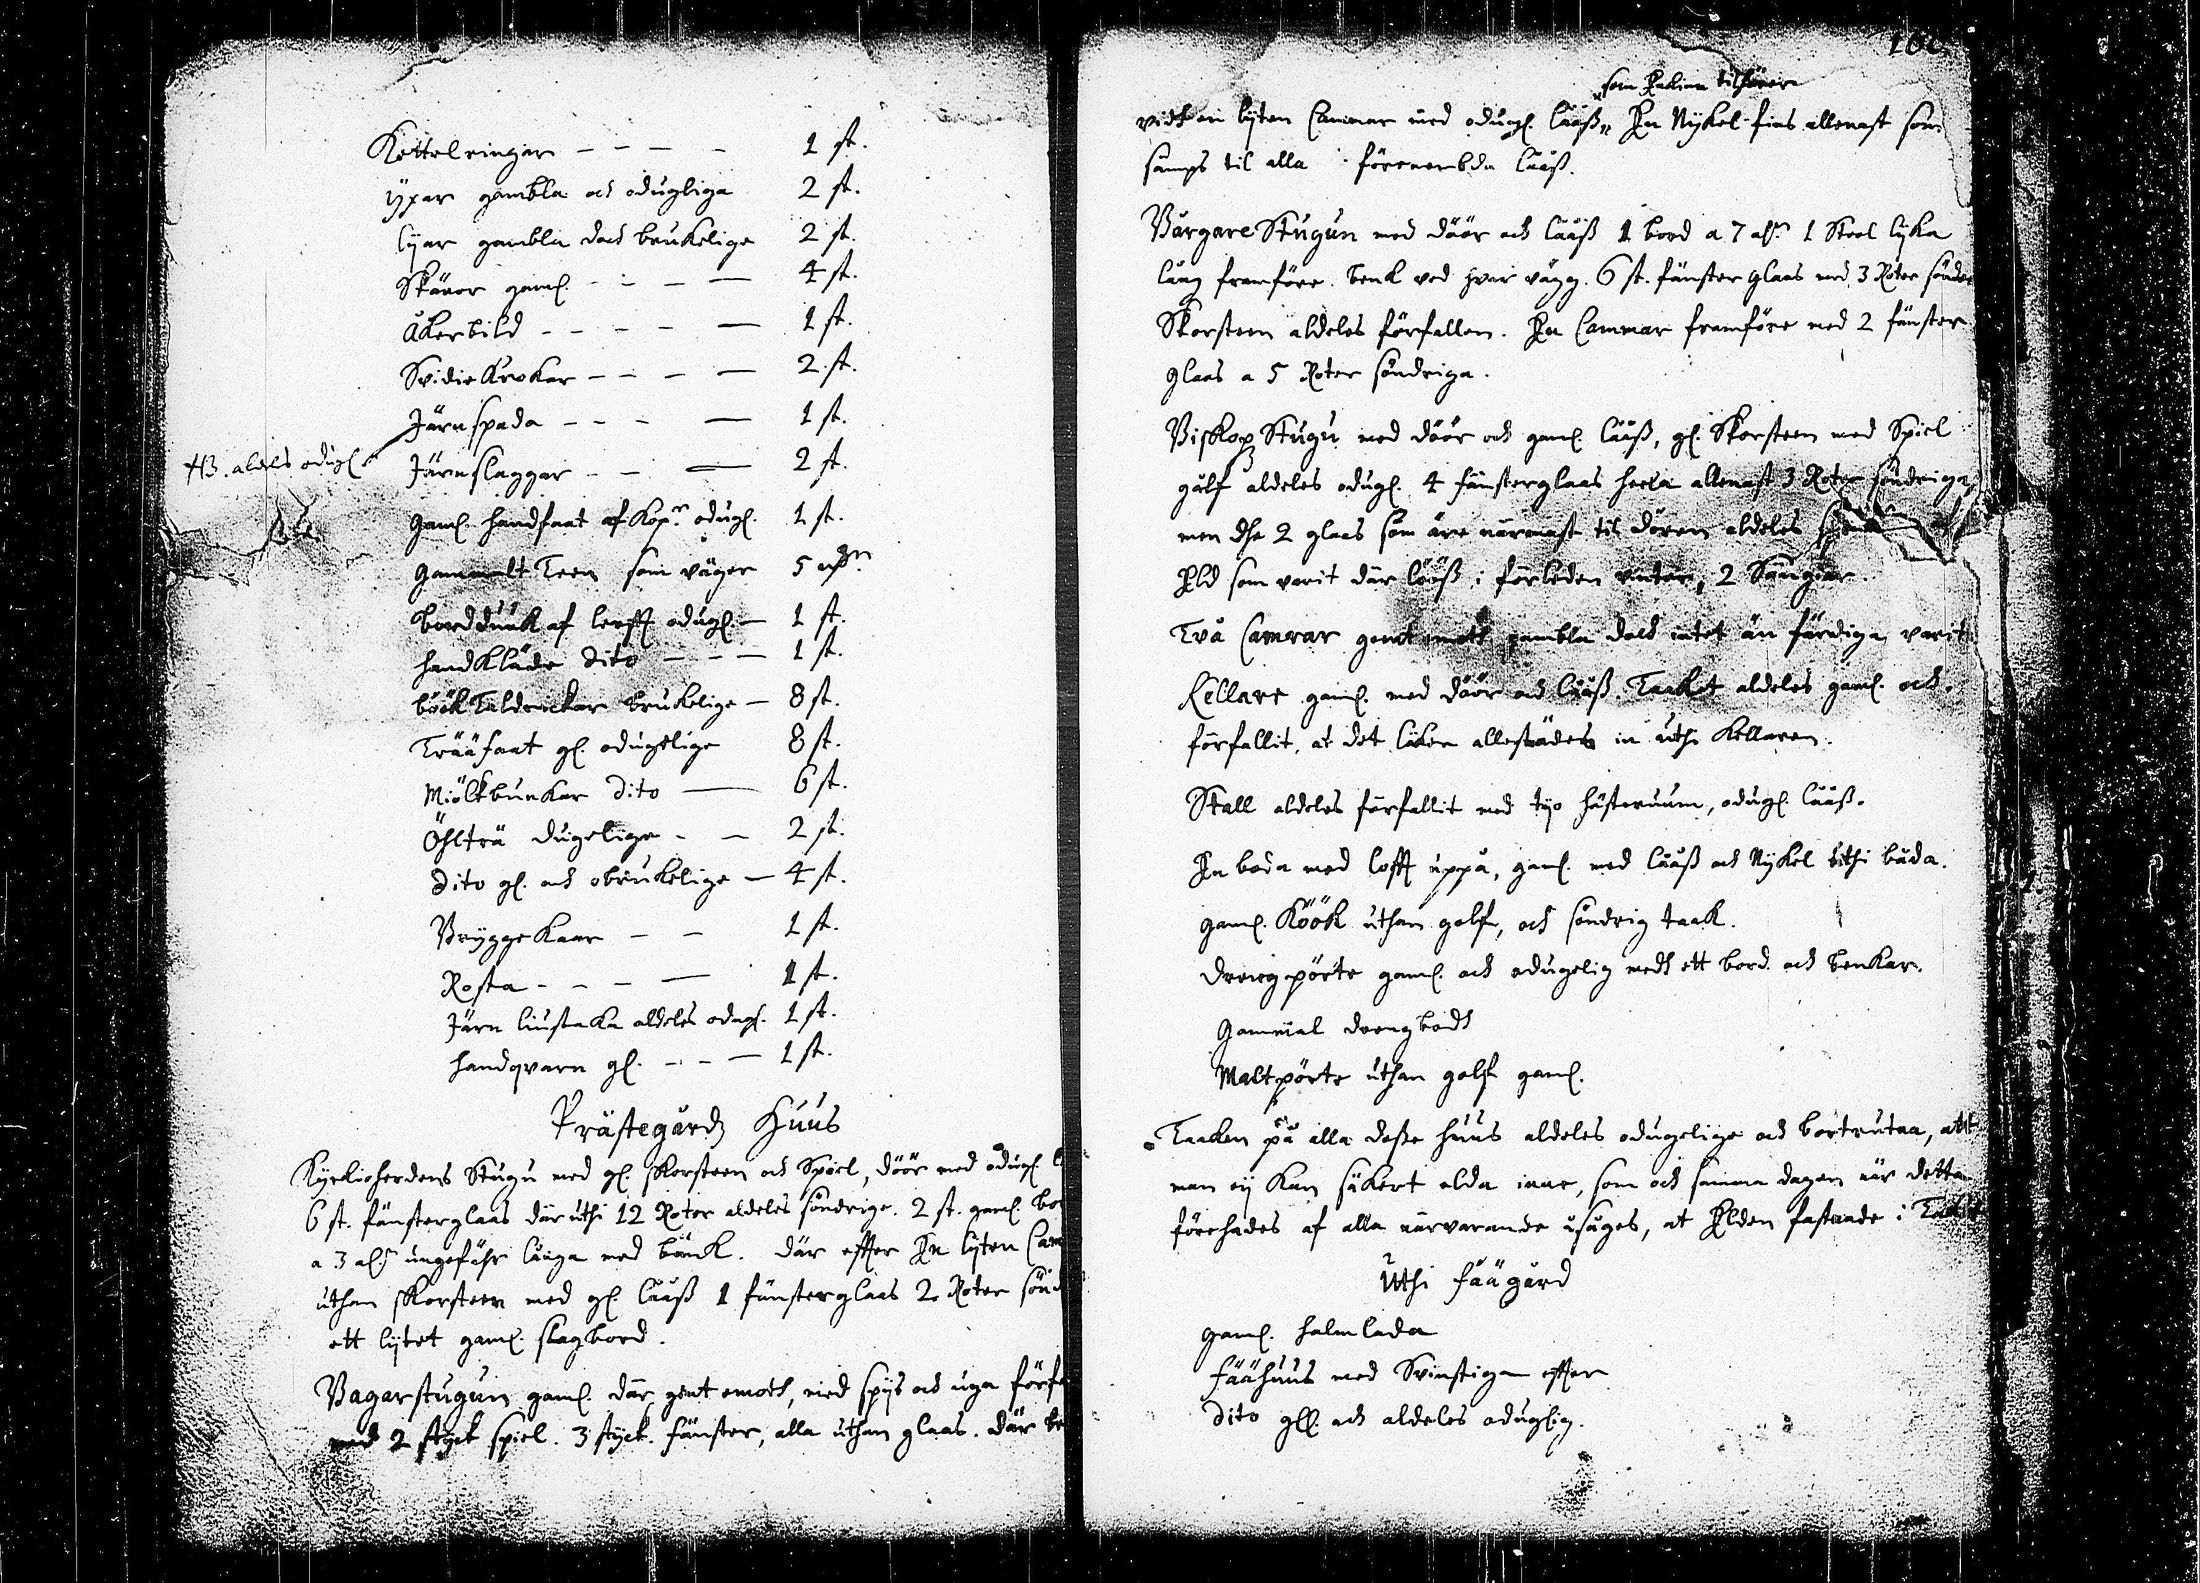 Kettelringar - - - - 1 st.
yxar gambla och odugliga 2 st.
lyar gambla doch brukelige 2 st.
Skäror gaml. - - - - 4 st.
Åkerbild - - - - - 1 st.
Svidiekrokar - - - - 2 st.
Järnspada - - - - 1 st.
NB. aldels odugl.
Järnslaggar - - - 2 st.
Gaml. handfaat af Kop.r odugl. 1 st.
Gammalt Teen som väger 5
bordduuk af lerfft odugl. - 1 st.
handkläde dito - - - 1 st.
böök Taldrickar brukelige - 8 st.
Trääfaat gl. odugelige 8 st.
Miölkbunkar dito - 6 st.
Öhlträ dugelige - - 2 st.
dito gl. och obrukelige - 4 st.
Bryggekaar - - 1 st.
Rosta - - - - 1 st.
Järn liustaka aldeles odugl. 1 st.
handqvarn gl. - - - 1 st.
Prästegårdz Huus
Kyrkioherdens Stugu med gl. skorsteen och Spiel, döör med odugl.
6 st. fänsterglaas där uthi 12 Rotor aldeles söndrige. 2 st. gaml. bo
a 3 al.r ungefähr långa med bänck. där effter En lyten Cam
uthan skorsteen med gl. lååß 1 fänsterglaas 2 Rotor sönd
ett lytet gaml. slagbord.
Bagarstugun gaml. där gent emoth, med spijs och ugn förfa
med 2 styck spiel. 3 styck. fänster, alla uthan glaas. där
som Enkian tilhörer
vidh en lyten Cammar med odugl. lååß, En Nykel fins allenast som
samps til alla förenembda lååß.
Bårgare Stugun med döör och lååß 1 bord a 7 al.r 1 Stool lyka
lång framföre. benk ved hvar vägg. 6 st. fänster glaas med 3 Rotor söndr
Skorsteen aldeles förfallen. En Cammar framföre med 2 fänster
glaas a 5 Rotor söndriga.
Biskopz Stugu med döör och gaml. lååß, gl. Skorsteen med Spiel
gålf aldeles odugl. 4 fänsterglaas heela allenast 3 Rotor söndriga,
men dhe 2 glaas som äre närmast til dören aldeles
Eld som varit där lööß i förleden vinter, 2 Sängiar.
Två Camrar gent emoth gambla doch intet än färdiga varit
Kellare gaml. med döör och lååß. Taaket aldeles gaml. och
förfallit, at det läker allestädes in uthi Kellaren.
Stall aldeles förfallit med tijo hästeruum, odugl. lååß.
En boda med lofft uppå, gaml. med lååß och Nykel uthi båda.
Gaml. Köök uthan golf, och söndrig taak.
Drengpörte gaml. och odugelig medh ett bord och benkar.
Gammal drengbodh
Maltpörte uthan golf gaml.
Taaken på alla deße huus aldeles odugelige och bortrutna, att
man ey kan säkert elda inne, som och samma dagen när detta
förehades af alla närvarande åsåges, at Elden fastnade i
Uthi fäägård
Gaml. halmlada
Fäähuus med Svinstiga effter
dito gll. och aldeles oduglig.